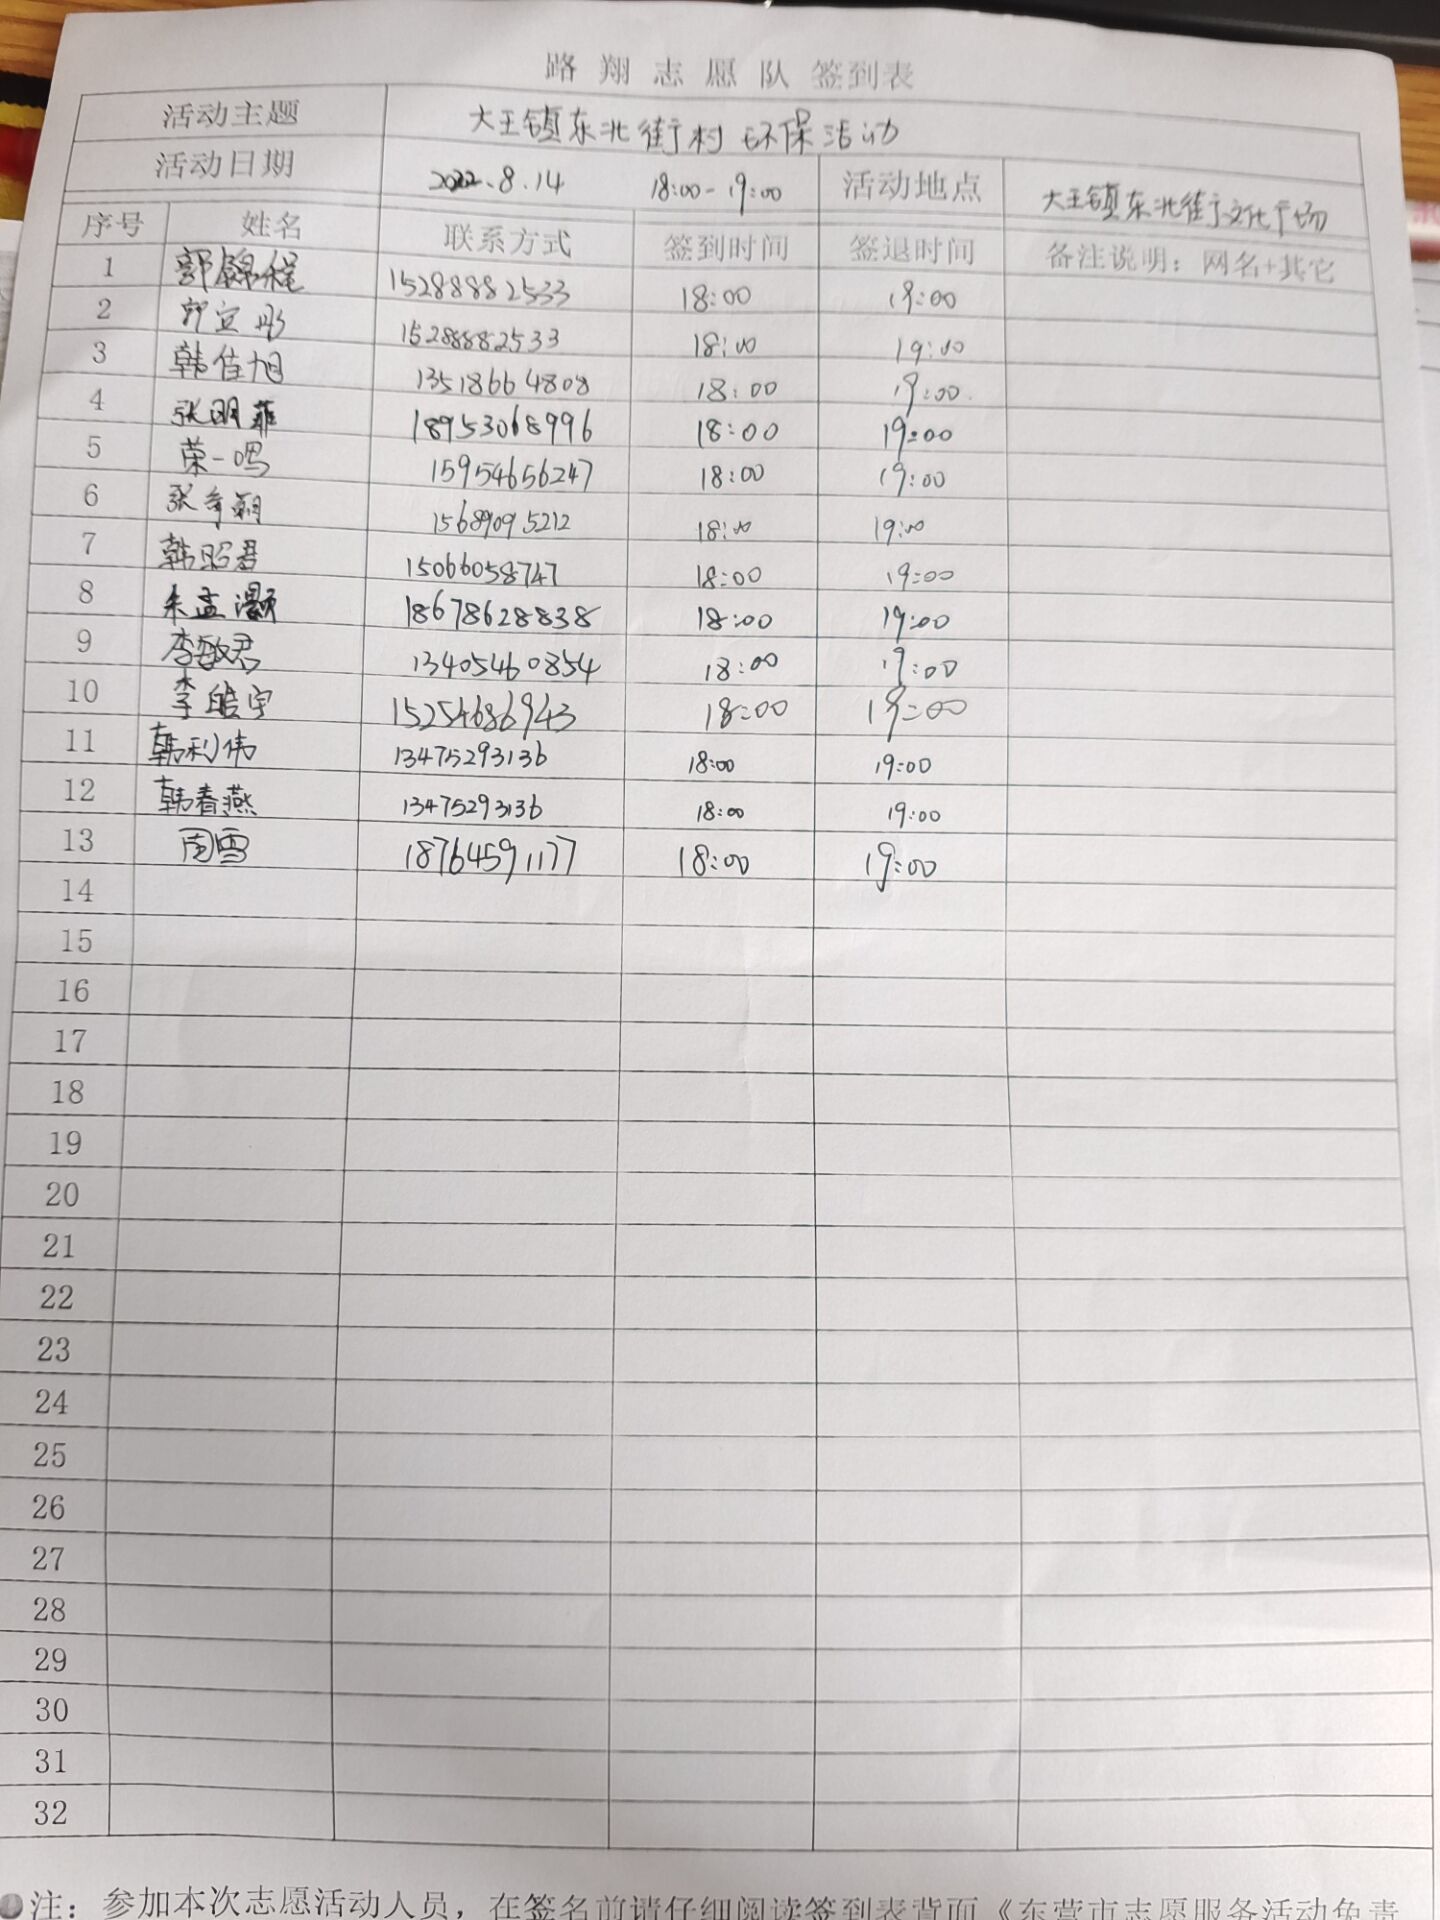 路翔志愿队 签到表
活动主题 大王镇东北街村 环保活动
活动日期 2022.8.14 18:00-19:00 活动地点 大王镇东北街文化广场
序号 姓名 联系方式 签到时间 签退时间 备注说明：网名+其它
1 郭锦程 15288882533 18:00 19:00
2 郭宜彤 15288882533 18:00 19:00
3 韩佳旭 13518664808 18:00 19:00
4 张明菲 18953068996 18:00 19:00
5 荣一鸣 15954656247 18:00 19:00
6 张 15689095212 18:00 19:00
7 韩昭君 15066058747 18:00 19:00
8 朱孟灏 18678628838 18:00 19:00
9 李敬君 13405460854 18:00 19:00
10 李皓宇 15254686943 18:00 19:00
11 韩利伟 13475293136 18:00 19:00
12 韩春燕 13475293136 18:00 19:00
13 周雪 18764591177 18:00 19:00
14
15
16
17
18
19
20
21
22
23
24
25
26
27
28
29
30
31
32
注：参加本次志愿活动人员，在签名前请仔细阅读签到表背面《东营市志愿服务活动免责